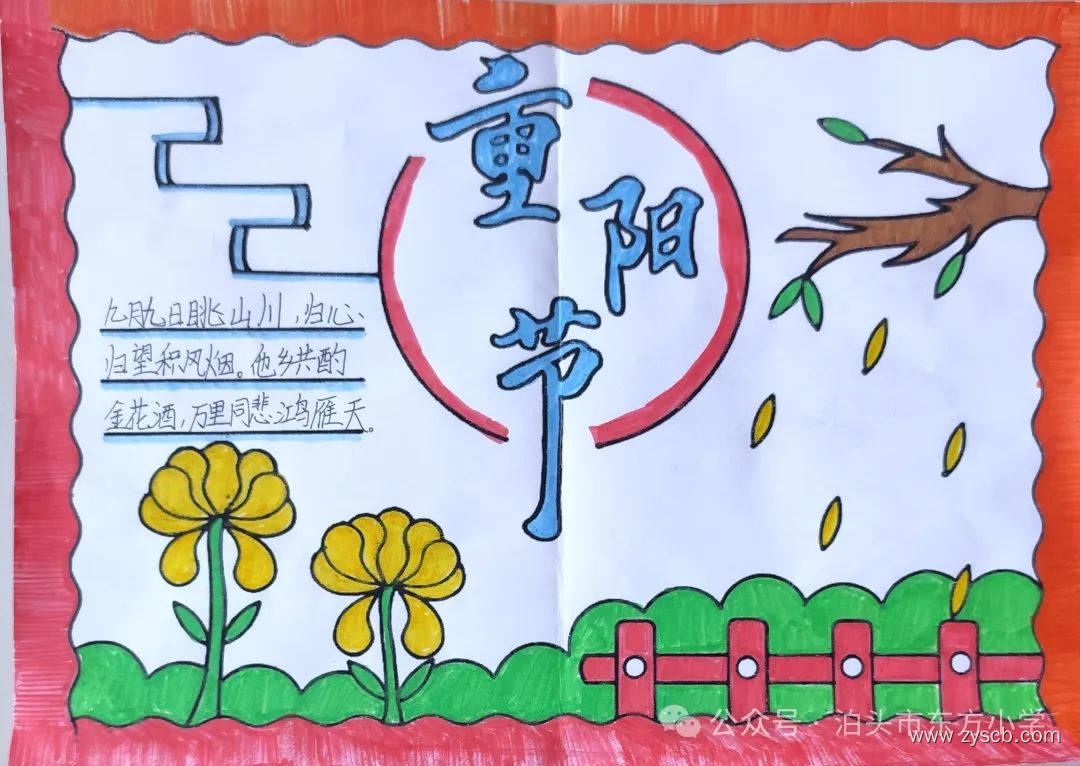 重阳节
九月九日眺山川，归心
归望积风烟。他乡共酌
金花酒，万里同悲鸿雁天。
公众号·泊头市东方小学
www.zyscb.com